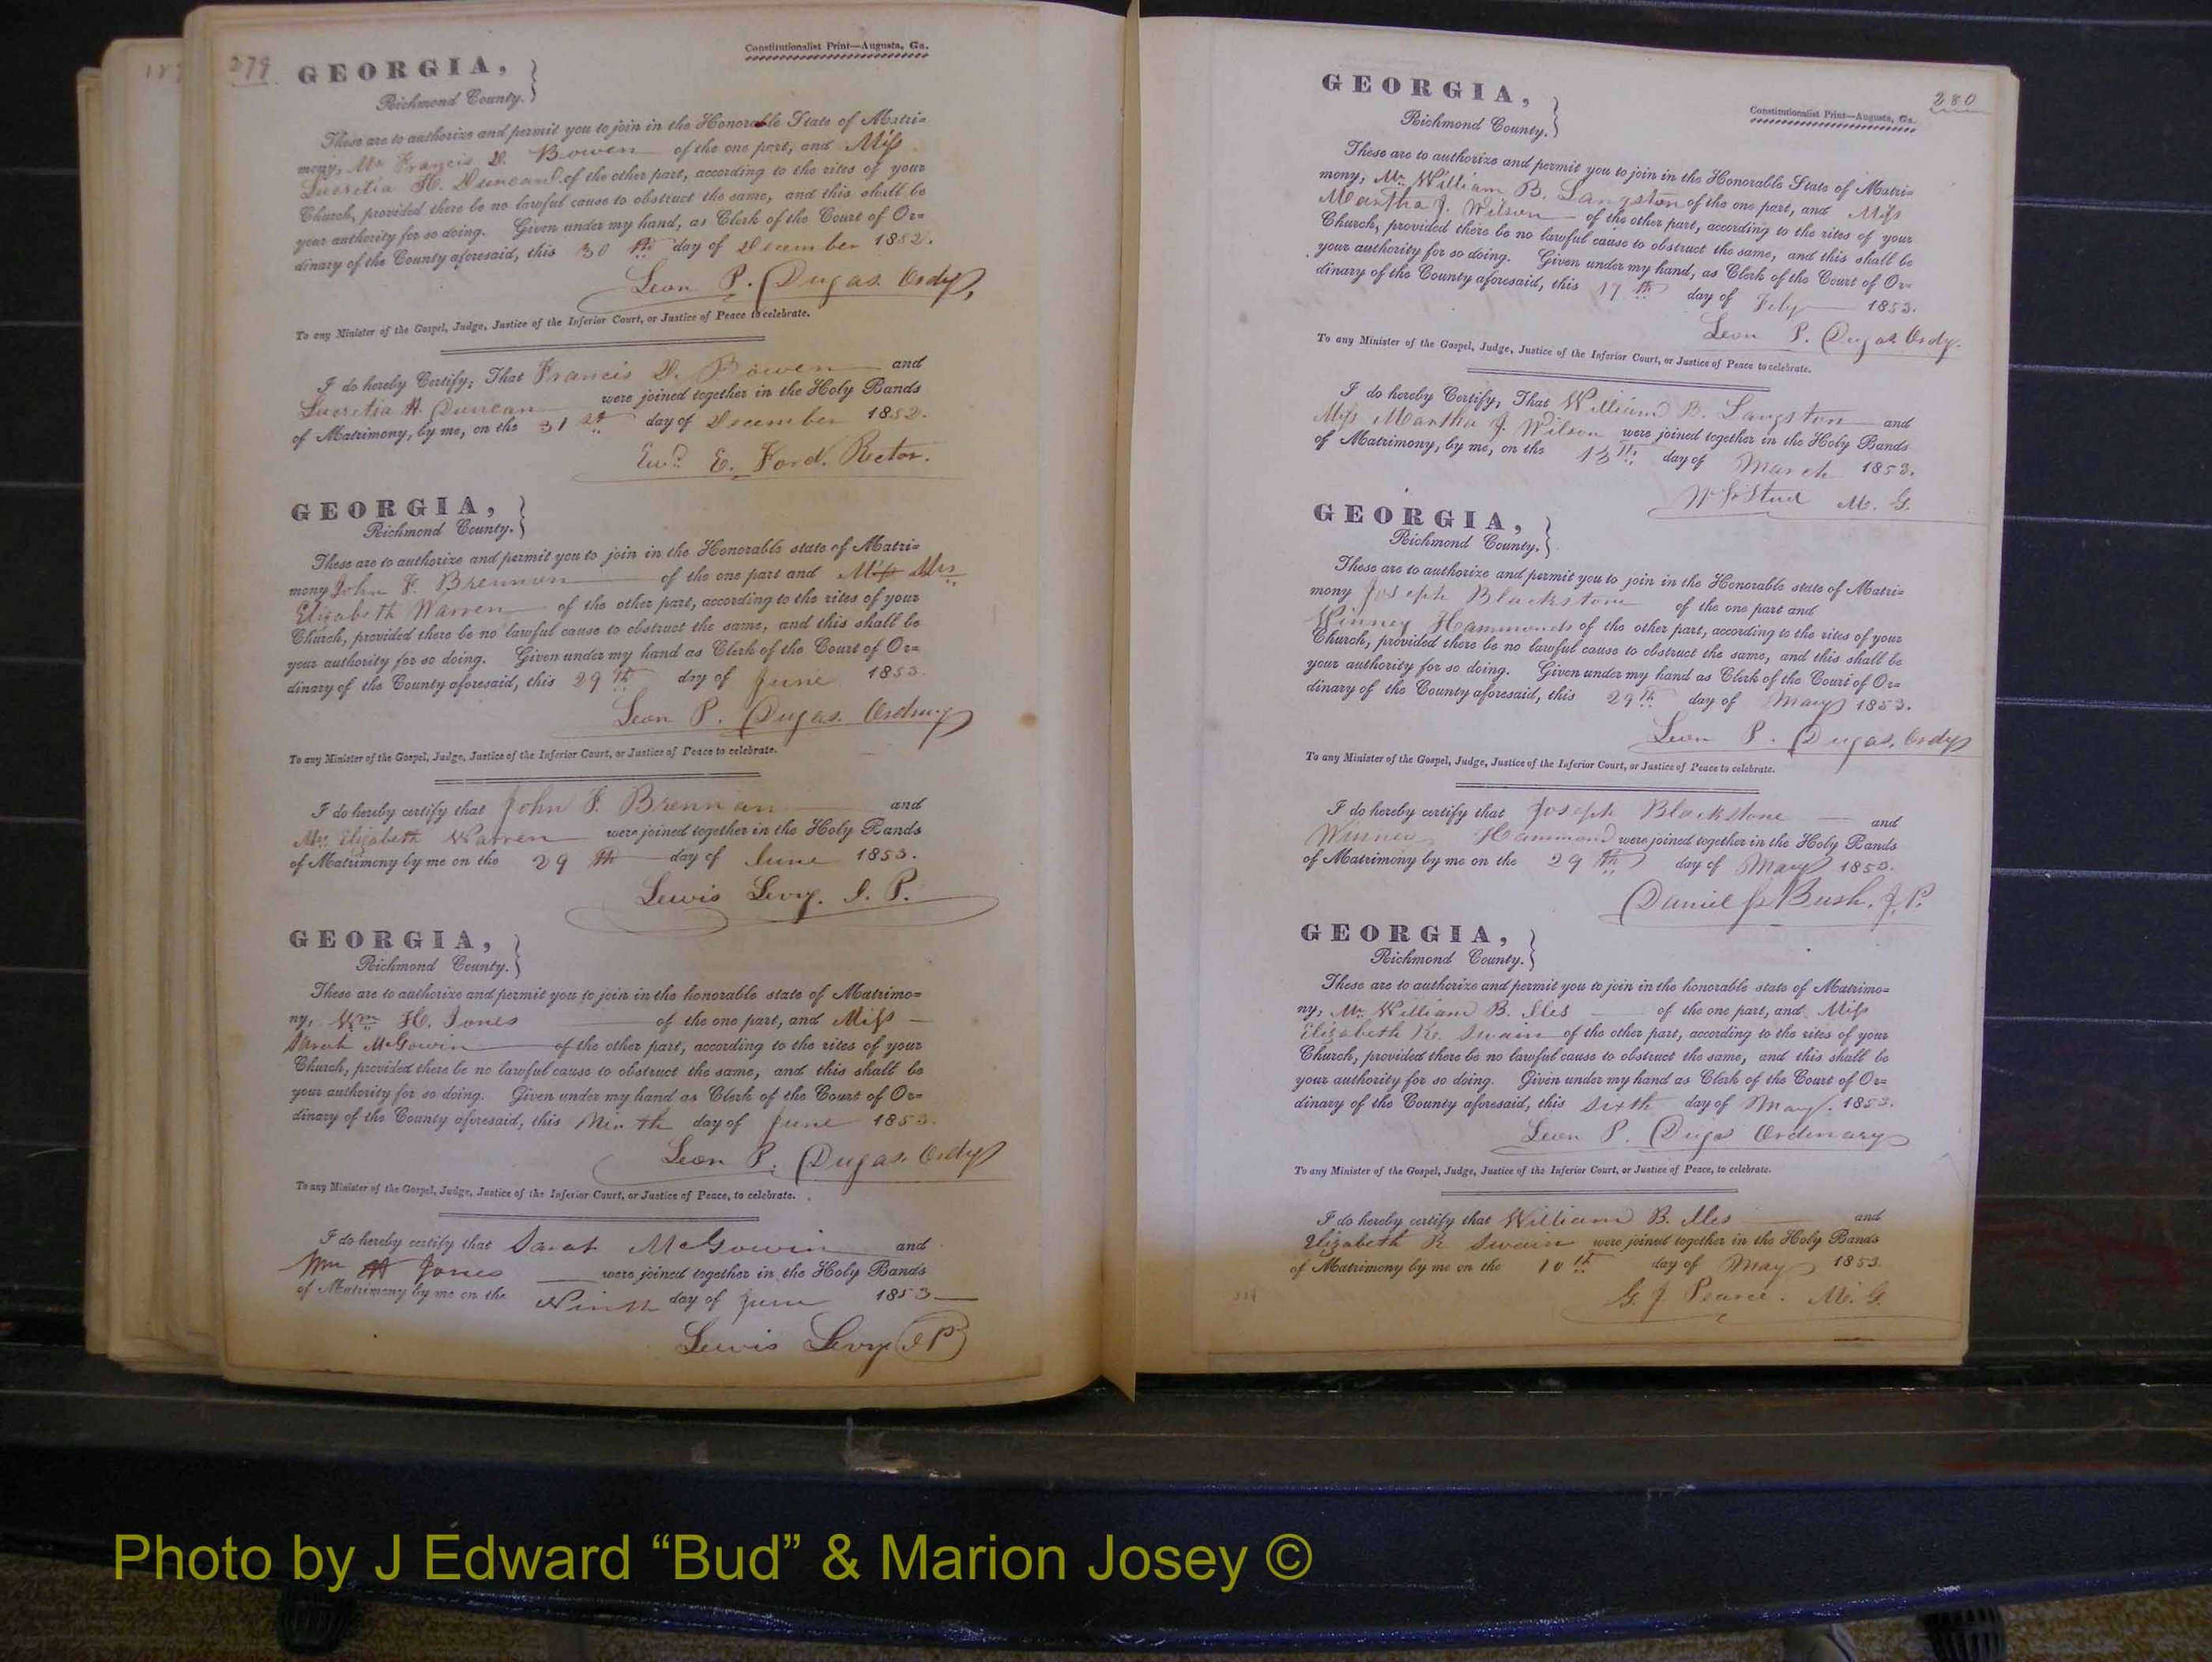 279
Constitutionalist Print—Augusta, Ga.
GEORGIA,
Richmond County.
These are to authorize and permit you to join in the Honorable State of Matri=
mony, Mr Francis D. Bowen of the one part, and Miss
Lucretia H. Duncan of the other part, according to the rites of your
Church, provided there be no lawful cause to obstruct the same, and this shall be
your authority for so doing. Given under my hand, as Clerk of the Court of Or=
dinary of the County aforesaid, this 30th day of December 1852.
Leon P. Dugas. Ordy,
To any Minister of the Gospel, Judge, Justice of the Inferior Court, or Justice of Peace to celebrate.
I do hereby Certify; That Francis D. Bowen and
Lucretia H. Duncan were joined together in the Holy Bands
of Matrimony, by me, on the 31st day of December 1852.
Ewd. E. Ford. Rector.
GEORGIA,
Richmond County.
These are to authorize and permit you to join in the Honorable state of Matri=
mony John F. Brennon of the one part and Miss Mrs
Elizabeth Warren of the other part, according to the rites of your
Church, provided there be no lawful cause to obstruct the same, and this shall be
your authority for so doing. Given under my hand as Clerk of the Court of Or=
dinary of the County aforesaid, this 29th day of June 1853.
Leon P. Dugas. Ordinary
To any Minister of the Gospel, Judge, Justice of the Inferior Court, or Justice of Peace to celebrate.
I do hereby certify that John F. Brennan and
Mrs Elizabeth Warren were joined together in the Holy Bands
of Matrimony by me on the 29th day of June 1853.
Lewis Levy. J. P.
GEORGIA,
Richmond County.
These are to authorize and permit you to join in the honorable state of Matrimo=
ny, Wm H. Jones of the one part, and Miss
Sarah McGowin of the other part, according to the rites of your
Church, provided there be no lawful cause to obstruct the same, and this shall be
your authority for so doing. Given under my hand as Clerk of the Court of Or=
dinary of the County aforesaid, this Ninth day of June 1853.
Leon P. Dugas. Ordy
To any Minister of the Gospel, Judge, Justice of the Inferior Court, or Justice of Peace, to celebrate.
I do hereby certify that Sarah McGowin and
Wm H Jones were joined together in the Holy Bands
of Matrimony by me on the Ninth day of June 1853
Lewis Levy J P
280
Constitutionalist Print—Augusta, Ga.
GEORGIA,
Richmond County.
These are to authorize and permit you to join in the Honorable State of Matri=
mony, Mr William B. Langston of the one part, and Miss
Martha J. Wilson of the other part, according to the rites of your
Church, provided there be no lawful cause to obstruct the same, and this shall be
your authority for so doing. Given under my hand, as Clerk of the Court of Or=
dinary of the County aforesaid, this 17th day of Feby 1853.
Leon P. Dugas Ordy.
To any Minister of the Gospel, Judge, Justice of the Inferior Court, or Justice of Peace to celebrate.
I do hereby Certify; That William B. Langston and
Miss Martha J. Wilson were joined together in the Holy Bands
of Matrimony, by me, on the 13th day of March 1853.
M. G.
GEORGIA,
Richmond County.
These are to authorize and permit you to join in the Honorable state of Matri=
mony Joseph Blackstone of the one part and
Winney Hammonds of the other part, according to the rites of your
Church, provided there be no lawful cause to obstruct the same, and this shall be
your authority for so doing. Given under my hand as Clerk of the Court of Or=
dinary of the County aforesaid, this 29th day of May 1853.
Leon P. Dugas. Ordy
To any Minister of the Gospel, Judge, Justice of the Inferior Court, or Justice of Peace to celebrate.
I do hereby certify that Joseph Blackstone and
Winney Hammond were joined together in the Holy Bands
of Matrimony by me on the 29th day of May 1853.
Daniel Bush, J. P.
GEORGIA,
Richmond County.
These are to authorize and permit you to join in the honorable state of Matrimo=
ny, Mr William B. Iles of the one part, and Miss
Elizabeth R. Swain of the other part, according to the rites of your
Church, provided there be no lawful cause to obstruct the same, and this shall be
your authority for so doing. Given under my hand as Clerk of the Court of Or=
dinary of the County aforesaid, this Sixth day of May. 1853.
Leon P. Dugas Ordinary
To any Minister of the Gospel, Judge, Justice of the Inferior Court, or Justice of Peace, to celebrate.
I do hereby certify that William B. Iles and
Elizabeth R Swain were joined together in the Holy Bands
of Matrimony by me on the 10th day of May 1853.
G. J Pearce. M. G.
Photo by J Edward “Bud” & Marion Josey ©